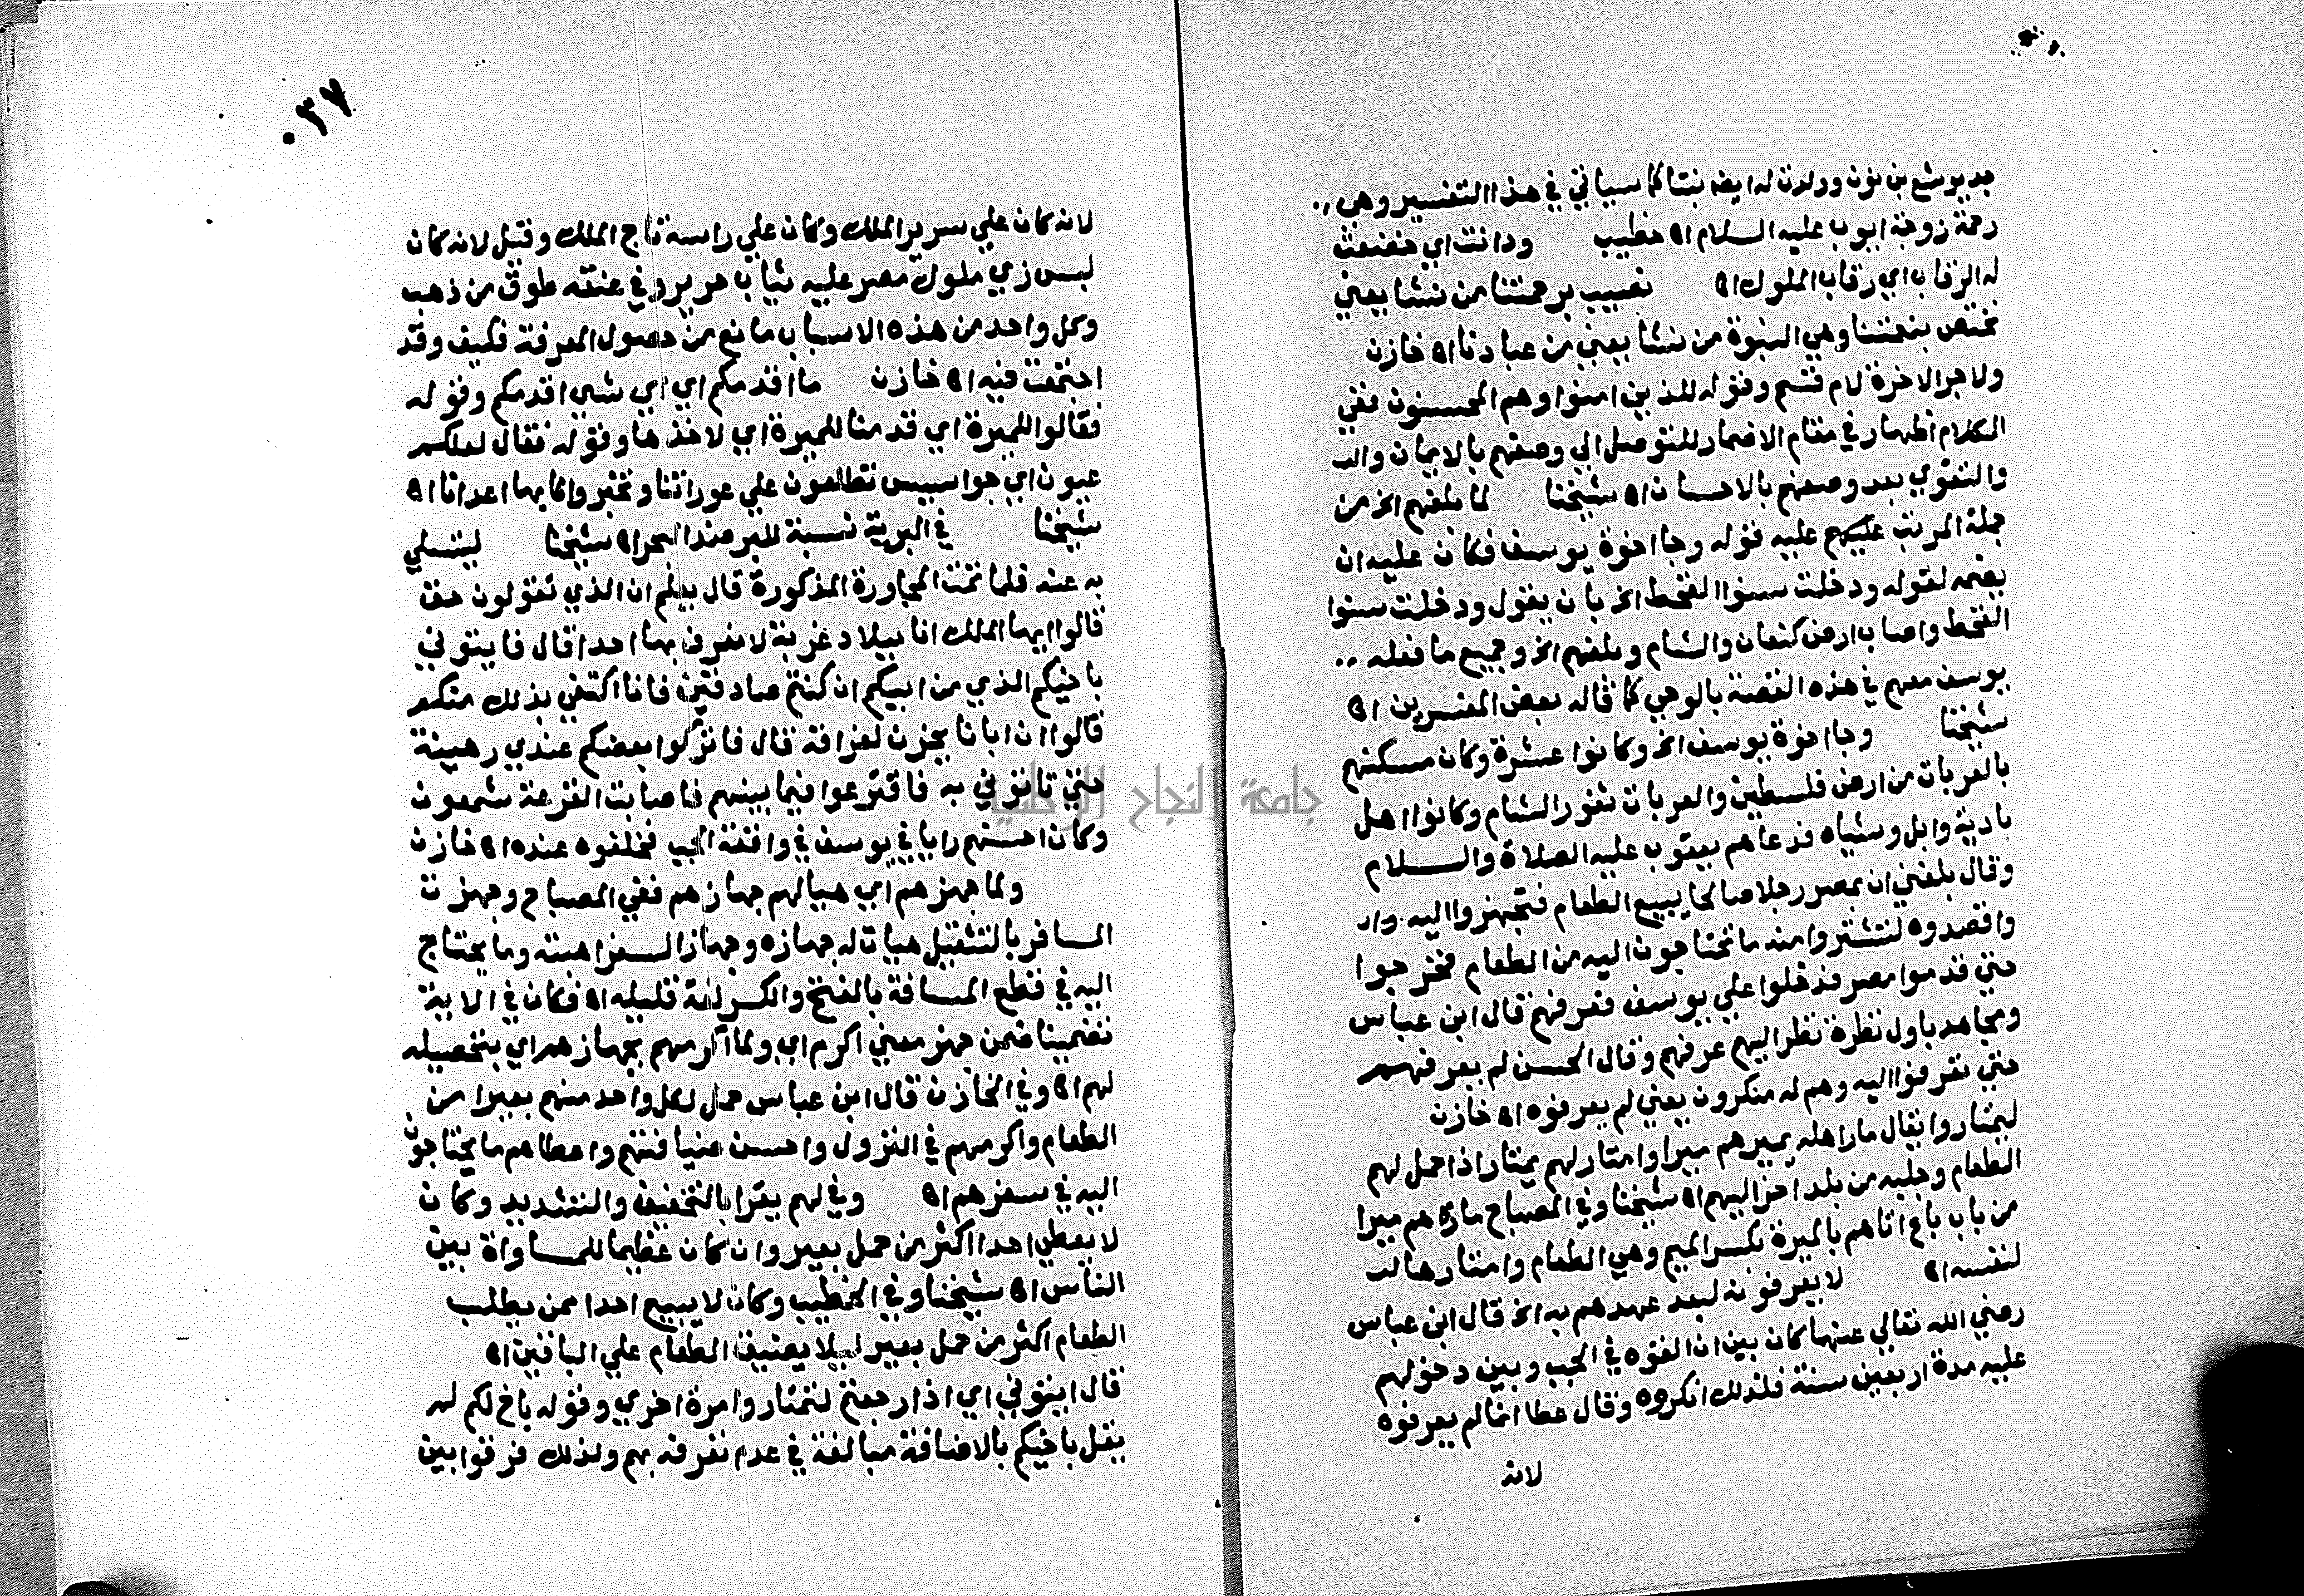 جد يوشع بن نون وولدت له ايضا بنتا كما سياتي في هذا التفسير وهي ..
رحمة زوجة ايوب عليه السلام اه خطيب ودانت اي خضعت
له الرقاب اي رقاب الملوك اه نصيب برحمتنا من نشا يعني
نختص بنعمتنا وهي النبوة من نشا يعني من عبادنا اه خازن
ولاجر الاخرة لام قسم وقوله للذين امنوا وهم المحسنون ففي
الكلام اظهار في مقام الاضمار للتوصل الي وصفهم بالايمان والت
والتقوي بعد وصفهم بالاحسان اه شيخنا لما بلغهم الخ من
جملة المرتب عليهم عليه قوله وجا اخوة يوسف فكان عليه ان
يضمه لقوله ودخلت سنوا القحط الخ بان يقول ودخلت سنوا
القحط واصاب ارض كنعان والشام وبلغهم الخ وجميع ما فعله ..
يوسف معهم في هذه القصة بالوحي كما قاله بعض المفسرين اه
شيخنا وجا اخوة يوسف الخ وكانوا عشرة وكان مسكنهم
بالعربات من ارض فلسطين والعربات ثغور الشام وكانوا اهل
بادية وابل وشياه فدعاهم يعقوب عليه الصلاة والسلام
وقال بلغني ان بمصر رجلا صالحا يبيع الطعام فتجهزوا اليه
واقصدوه لتشتروا منه ما تحتاجون اليه من الطعام فخرجوا
حتي قدموا مصر فدخلوا علي يوسف فعرفهم قال ابن عباس
ومجاهد باول نظرة نظر اليهم عرفهم وقال الحسن لم يعرفهم
حتي تعرفوا اليه وهم له منكرون يعني لم يعرفوه اه خازن
ليمتاروا يقال مار اهله يميرهم ميرا وامتار لهم يمتار اذا حمل لهم
الطعام وجلبه من بلد اخر اليهم اه شيخنا وفي المصباح مارهم ميرا
من باب باع اتاهم بالميرة بكسر الميم وهي الطعام وامتارها لت
لنفسه اه لا يعرفونه لبعد عهدهم به الخ قال ابن عباس
رضي الله تعالي عنهما كان بين ان القوه في الجب وبين دخولهم
عليه مدة اربعين سنة فلذلك انكروه وقال عطا انما لم يعرفوه
لانه
٠٣٧
لانه كان علي سرير الملك وكان علي راسه تاج الملك وقيل لانه كان
لبس زي ملوك مصر عليه ثياب حرير وفي عنقه طوق من ذهب
وكل واحد من هذه الاسباب مانع من حصول المعرفة فكيف وقد
اجتمعت فيه اه خازن ما اقدمكم اي اي شي اقدمكم وقوله
فقالوا للميرة اي قدمنا للميرة اي لاخذها وقوله فقال لعلكم
عيون اي جواسيس تطلعون علي عوراتنا وتخبروا بها اعدانا اه
شيخنا في البرية نسبة للبر ضد البحر اه شيخنا ليتسلي
به عنه فلما تمت المحاورة المذكورة قال يعلم ان الذي تقولون حق
قالوا ايها الملك انا ببلاد غربة لا نعرف بها احدا قال فايتوني
باخيكم الذي من ابيكم ان كنتم صادقين فانا اكتفي بذلك منكم
قالوا ان ابانا يحزن لفراقه قال فاتركوا بعضكم عندي رهينة
حتي تاتوني به فاقترعوا فيما بينهم فاصابت القرعة شمعون
وكان احسنهم رايا في يوسف في واقعة الجب فخلفوه عنده اه خازن
ولما جهزهم اي هيا لهم جهازهم ففي المصباح وجهزت
المسافر بالتثقيل هيات له جهازه وجهاز السفر اهبته وما يحتاج
اليه في قطع المسافة بالفتح والكسر لغة قليله اه فكان في الاية
تضمينا ضمن جهز معني اكرم اي ولما اكرمهم بجهازهم اي بتحصيله
لهم اه وفي الخازن قال ابن عباس حمل لكل واحد منهم بعيرا من
الطعام واكرمهم في النزول واحسن ضيافتهم واعطاهم ما يحتاجون
اليه في سفرهم اه وفي لهم يقرا بالتخفيف والتشديد وكان
لا يعطي احدا اكثر من حمل بعير وان كان عظيما للمساواة بين
الناس اه شيخنا وفي الخطيب وكان لا يبيع احدا ممن يطلب
الطعام اكثر من حمل بعير ليلا يضيق الطعام علي الباقين اه
قال ايتوني اي اذا رجعتم لتمتاروا مرة اخري وقوله باخ لكم لم
يقل باخيكم بالاضافة مبالغة في عدم تعرفه بهم ولذلك فرقوا بين
جامعة النجاح الوطنية